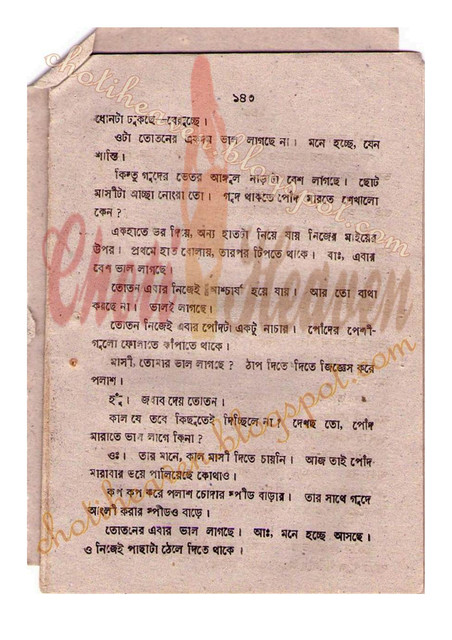 ১৪৩
ধোনটা ঢুকছে বেরুচ্ছে।
ওটা তোতনের একদম ভাল লাগছে না। মনে হচ্ছে, যেন
শাস্তি।
কিন্তু গুদের ভেতর আঙ্গুল নাড়াটা বেশ লাগছে। ছোট
মাসীটা আচ্ছা নোংরা তো। গুদ থাকতে পোঁদ মারতে শেখালো
কেন?
একহাতে ভর দিয়ে, অন্য হাতটা নিয়ে যায় নিজের মাইয়ের
উপর। প্রথমে হাত বোলায়, তারপর টিপতে থাকে। বাঃ, এবার
বেশ ভাল লাগছে।
তোতন এবার নিজেই আশ্চর্য হয়ে যায়। আর তো ব্যথা
করছে না। ভালই লাগছে।
তোতন নিজেই এবার পোঁদটা একটু নাচায়। পোঁদের পেশী-
গুলো ফোলাতে কাঁপাতে থাকে।
মাসী, তোমার ভাল লাগছে? ঠাপ দিতে দিতে জিজ্ঞেস করে
পলাশ।
হুঁ। জবাব দেয় তোতন।
কাল যে তবে কিছুতেই দিচ্ছিলে না? দেখছ তো, পোঁদ
মারাতে ভাল লাগে কিনা?
ওঃ। তার মানে, কাল মাসী দিতে চায়নি। আজ তাই পোঁদ
মারাবার ভয়ে পালিয়েছে কোথাও।
কপ কপ করে পলাশ চোদার স্পীড বাড়ায়। তার সাথে গুদে
আংলী করার স্পীডও বাড়ে।
তোতনের এবার ভাল লাগছে। আঃ, মনে হচ্ছে আসছে।
ও নিজেই পাছাটা ঠেলে দিতে থাকে।
Choti Heaven
chotiheaven.blogspot.com
chotiheaven.blogspot.com